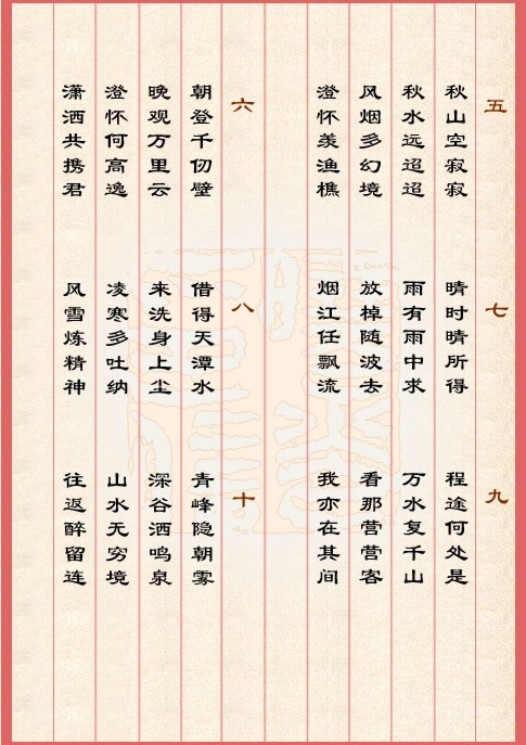 五
秋山空寂寂
秋水远迢迢
风烟多幻境
澄怀羡渔樵
六
朝登千仞壁
晚观万里云
澄怀何高逸
潇洒共携君
七
晴时晴所得
雨有雨中求
放棹随波去
烟江任飘流
八
借得天潭水
来洗身上尘
凌寒多吐纳
风雪炼精神
九
程途何处是
万水复千山
看那营营客
我亦在其间
十
青峰隐朝雾
深谷洒鸣泉
山水无穷境
往返醉留连